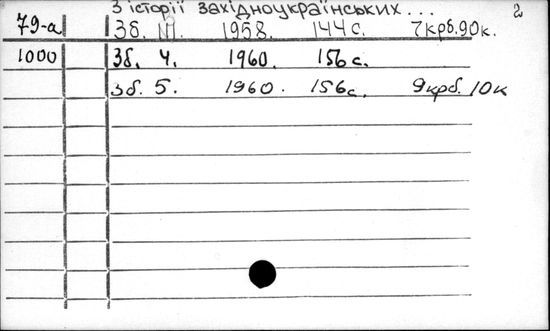 З історії західноукраїнських... 2
79-а Зб. III. 1958. 144 с. 7крб.90к.
1000 Зб. 4. 1960. 156 с.
Зб. 5. 1960. 156с. 9крб. 10к